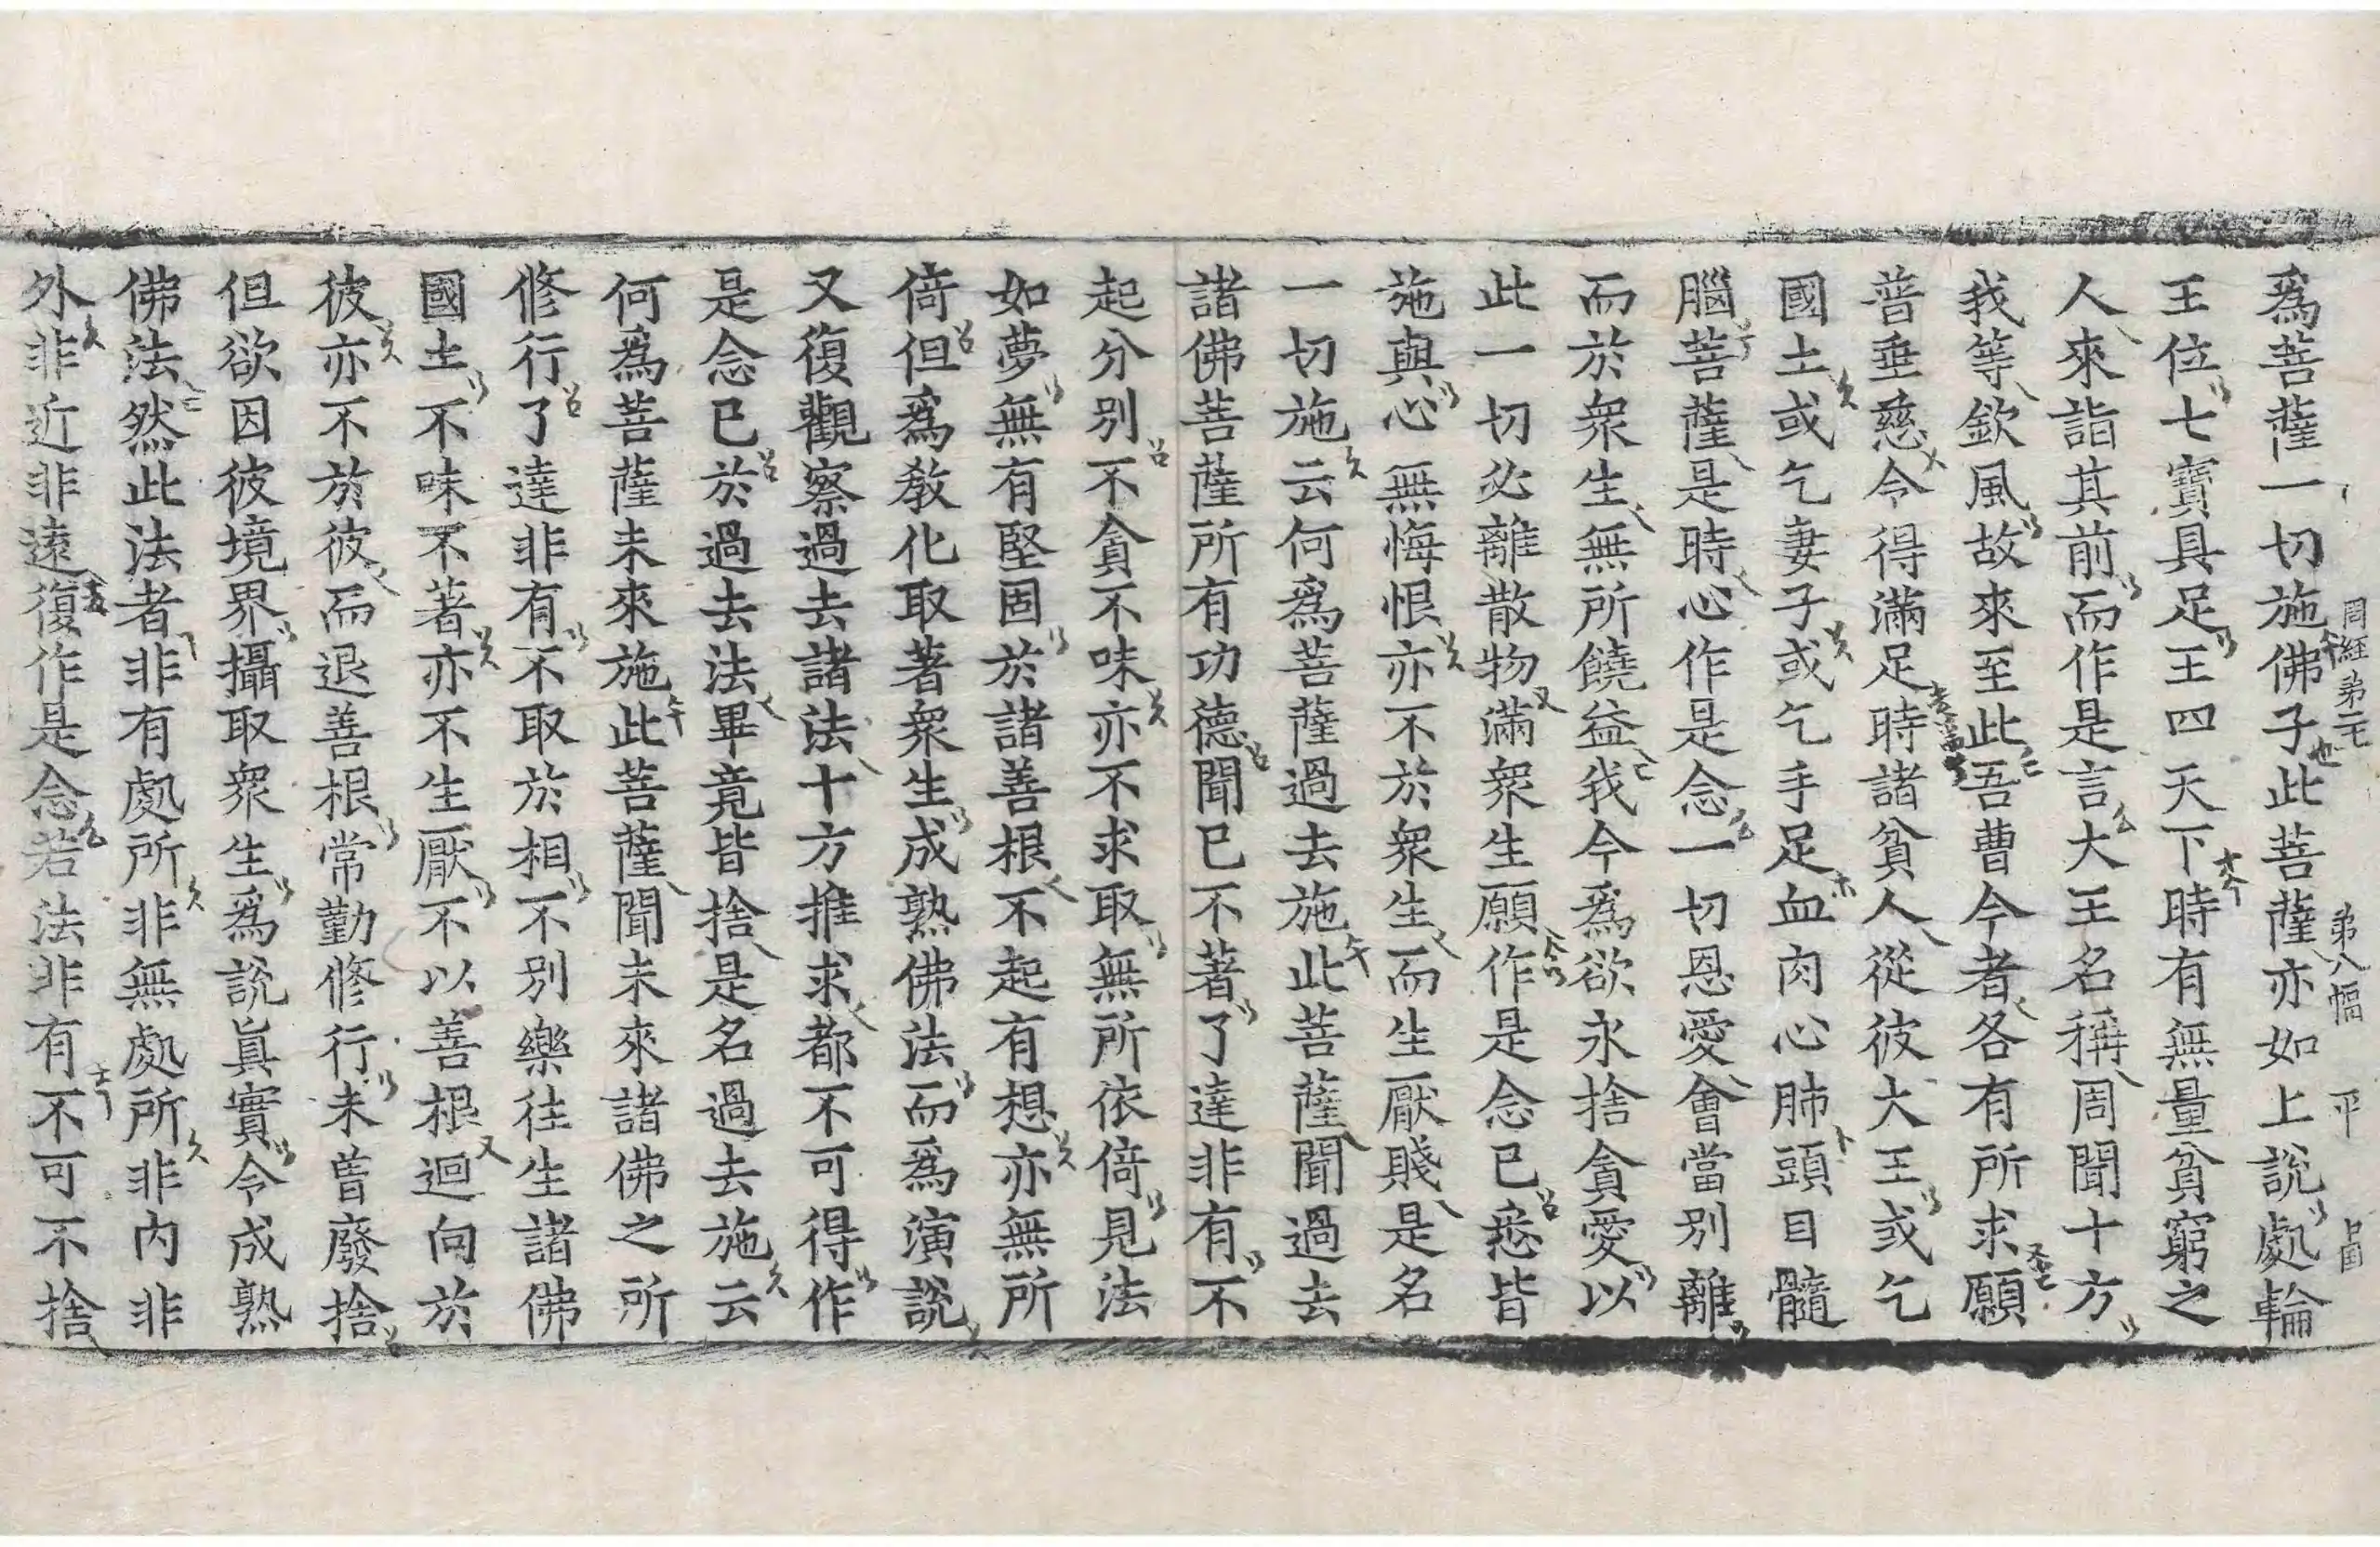 爲菩薩一切施佛子此菩薩亦如上說處輪
王位七寶具足王四天下時有無量貧窮之
人來詣其前而作是言大王名稱周聞十方
我等欽風故來至此吾曹今者各有所求願
普垂慈令得滿足時諸貧人從彼大王或乞
國土或乞妻子或乞手足血肉心肺頭目髓
腦菩薩是時心作是念一切恩愛會當別離
而於衆生無所饒益我今爲欲永捨貪愛以
此一切必離散物滿衆生願作是念已悉皆
施與心無悔恨亦不於衆生而生厭賤是名
一切施云何爲菩薩過去施此菩薩聞過去
諸佛菩薩所有功德聞已不著了達非有不
起分別不貪不味亦不求取無所依倚見法
如夢無有堅固於諸善根不起有想亦無所
倚但爲教化取著衆生成熟佛法而爲演說
又復觀察過去諸法十方推求都不可得作
是念已於過去法畢竟皆捨是名過去施云
何爲菩薩未來施此菩薩聞未來諸佛之所
修行了達非有不取於相不別樂往生諸佛
國土不味不著亦不生厭不以善根迴向於
彼亦不於彼而退善根常勤修行未曾廢捨
但欲因彼境界攝取衆生爲說眞實令成熟
佛法然此法者非有處所非無處所非內非
外非近非遠復作是念若法非有不可不捨